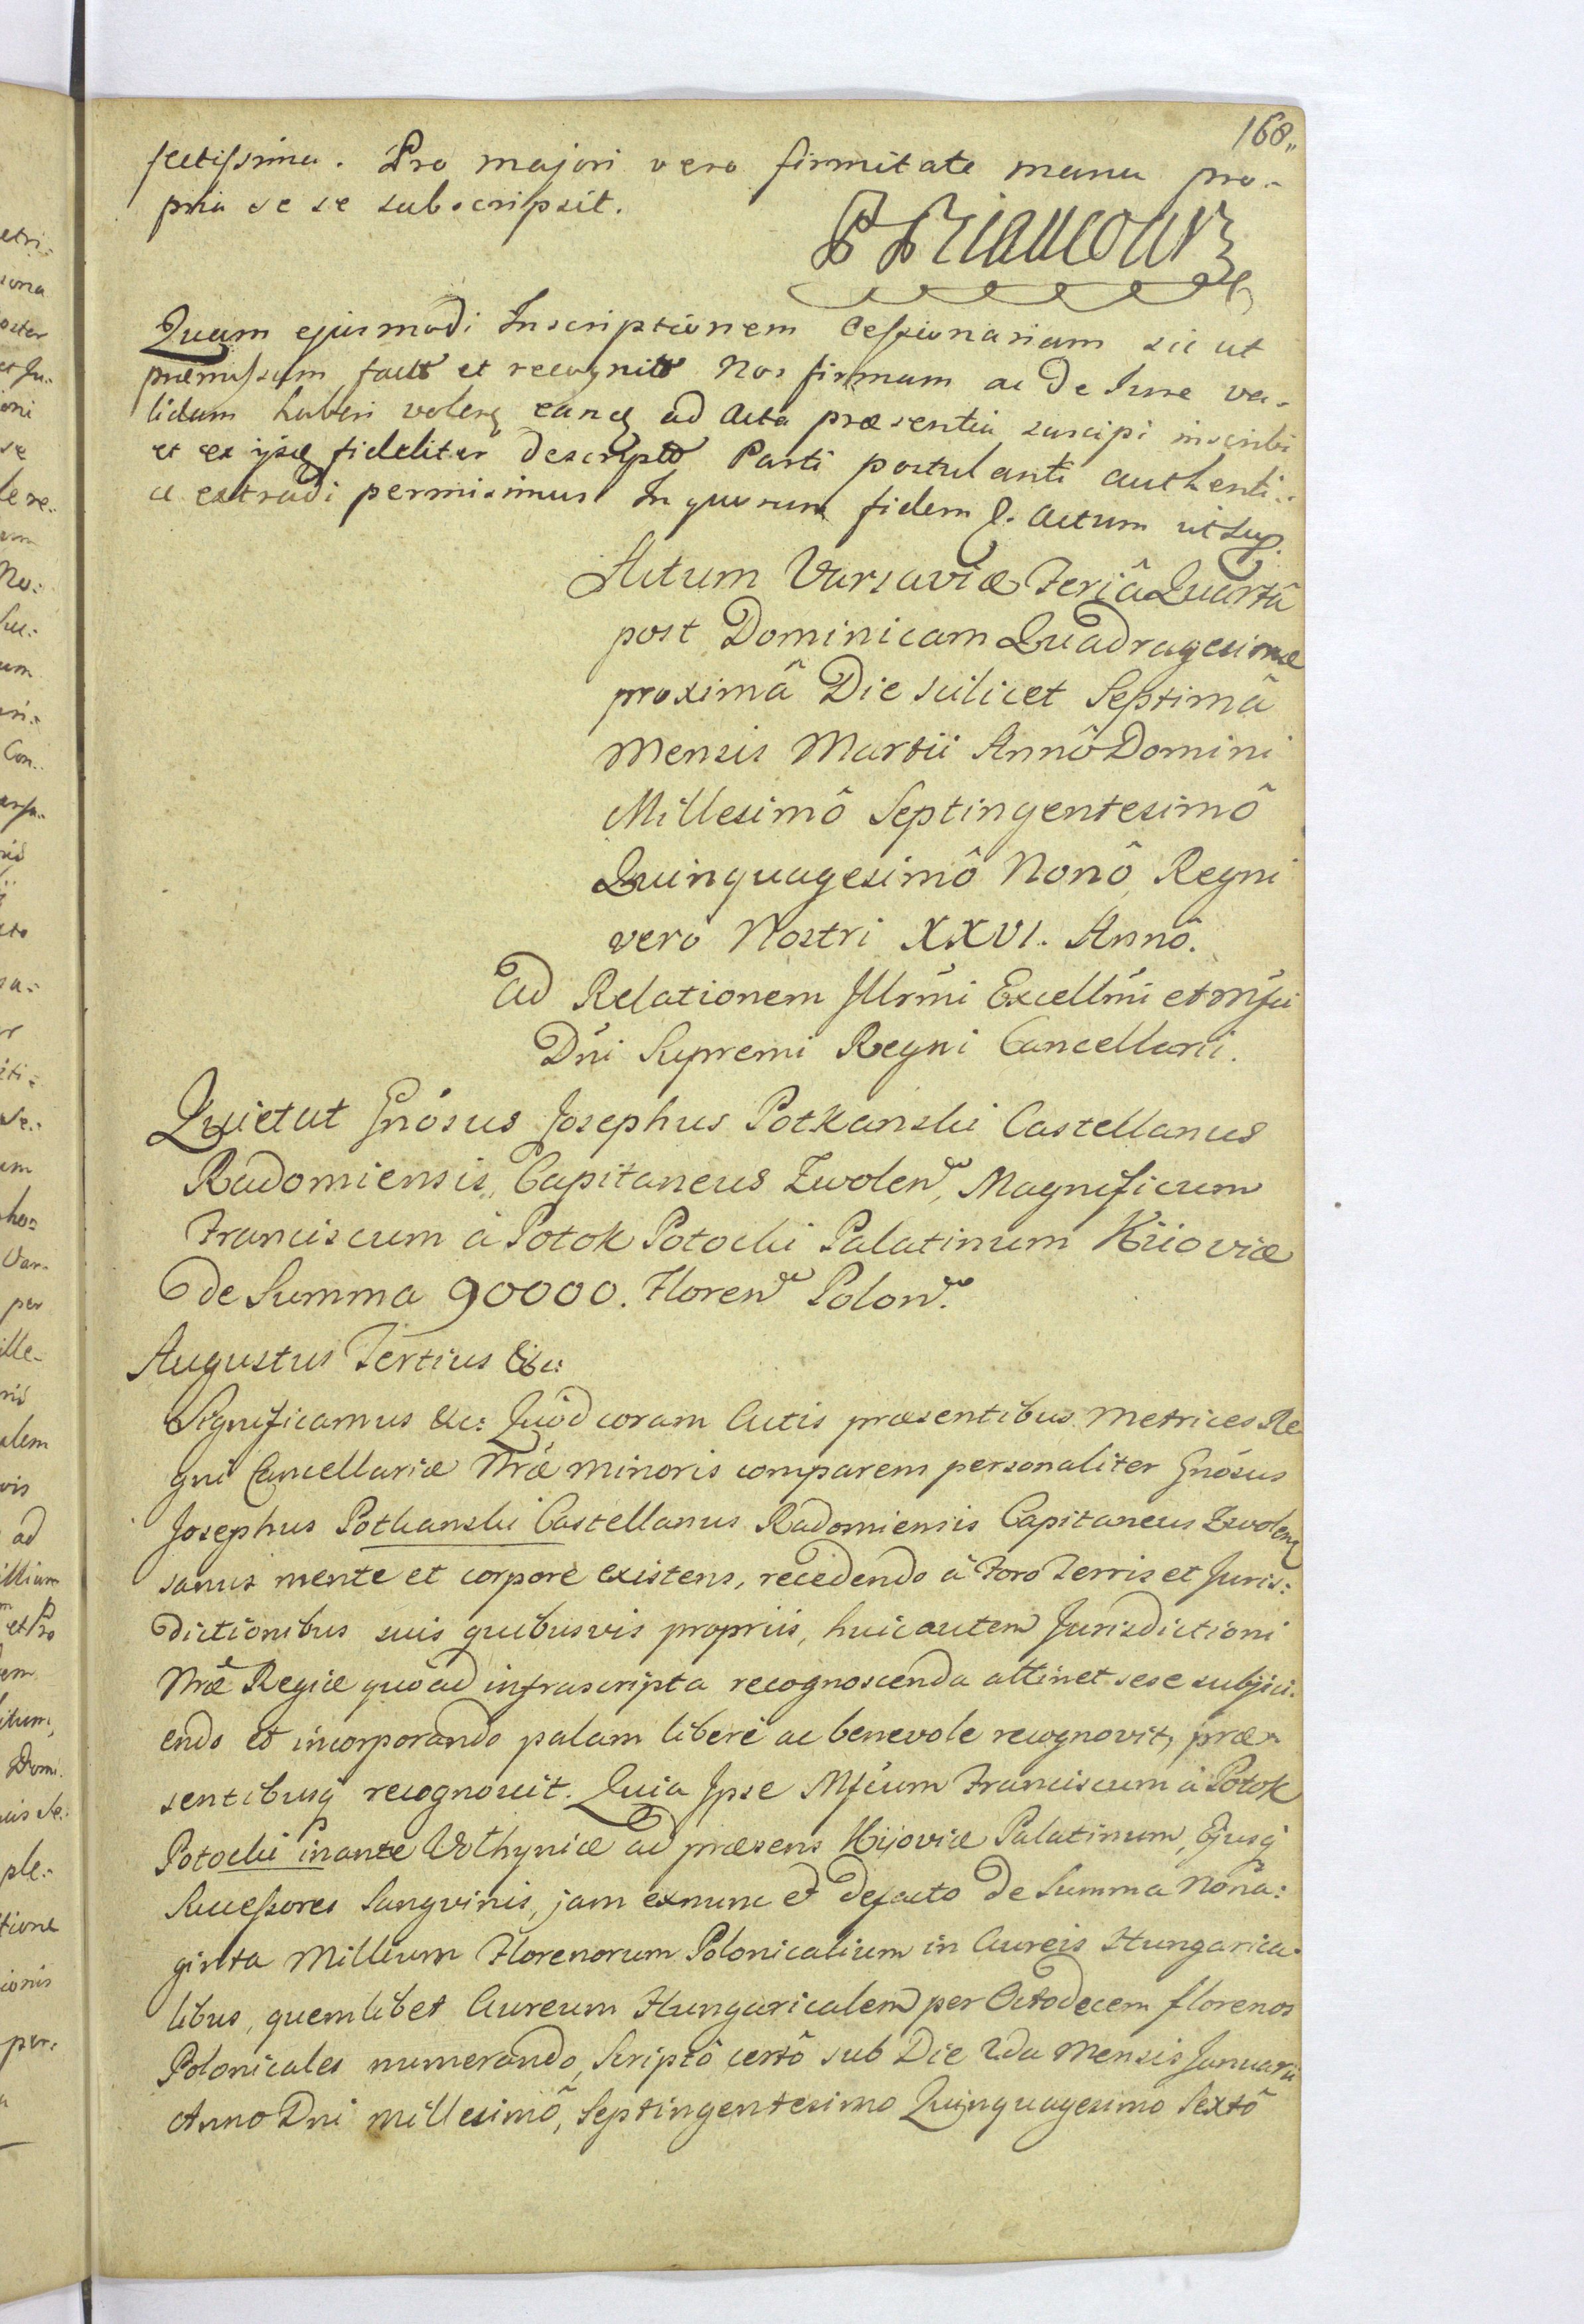 168
fectissima. Pro majori vero firmitate manu pro-
pria se se subscripsit.
P Briaucourt
Quam ejusmodi Inscriptionem Cessionariam sic ut
præmissum factô et recognitô Nos firmam ac de Jure va-
lidam haberi volenȝ eanq ad Acta præsentia suscipi inscribi
et ex ijsq fideliter descriptô Parti postulanti authenti-
ce extradi permisimus In quorum fidem &. Actum ut Sup.
Actum Varsaviæ Feriâ Quartâ
post Dominicam Quadragesimæ
proximâ Die scilicet Septimâ
Mensis Martii Annô Domini
Millesimô Septingentesimô
Quinquagesimô Nonô Regni
vero Nostri XXVI. Annô.
Ad Relationem Jllrmi Excellmi et Mfci
Dni Supremi Regni Cancellarii.
Quietat Gnosus Josephus Potkanski Castellanus
Radomiensis, Capitaneus Zwolen, Magnificum
Franciscum à Potok Potocki Palatinum Kiioviæ
de Summa 90000. Floren Polon.
Augustus Tertius &c:
Significamus &c: Quôd coram Actis præsentibus Metrices Re
gni Cancellariæ Nræ Minoris comparens personaliter Gnosus
Josephus Potkanski Castellanus Radomiensis Capitaneus Zwolenȝ
sanus mente et corpore existens, recedendo à Foro Terris et Juris:
dictionibus suis quibusvis propriis, huic autem Jurisdictioni
Nræ Regiæ quôad infrascripta recognoscenda attinet sese subjici.
endo et incorporando palam liberè ac benevole recognovit, præ-
sentibusq recognovit. Quia Jpse Mfcum Franciscum à Potok
Potocki inante Wolhyniæ ad præsens Kijoviæ Palatinum, Ejusq
Successores Sangvinis, jam exnunc et defacto de Summa Nona:
ginta Millium Florenorum Polonicalium in Aureis Hungarica-
libus, quemlibet Aureum Hungaricalem per Octodecem florenos
Polonicales numerando, Scriptô certô sub Die 2da Mensis Januarii
Anno Dni Millesimô, Septingentesimo Quinquagesimo Sextô